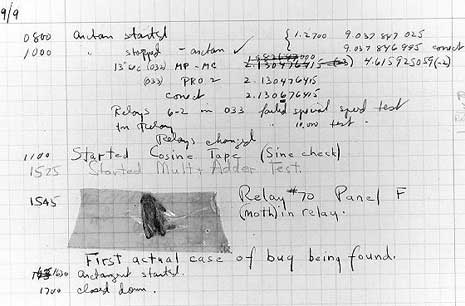 9/9
0800 Antan started
1000 " stopped - antan ✓ { 1.2700 9.037 847 025
9.037 846 995 correct
13"uc (032) MP-MC 2.130476415 (-3) 4.615925059(-2)
(033) PRO 2 2.130476415
correct 2.130676415
Relays 6-2 in 033 failed special speed test
in Relay " 10.000 test.
Relays changed
1100 Started Cosine Tape (Sine check)
1525 Started Mult+Adder Test.
1545 Relay #70 Panel F
(moth) in relay.
First actual case of bug being found.
1630 antangent started.
1700 closed down.